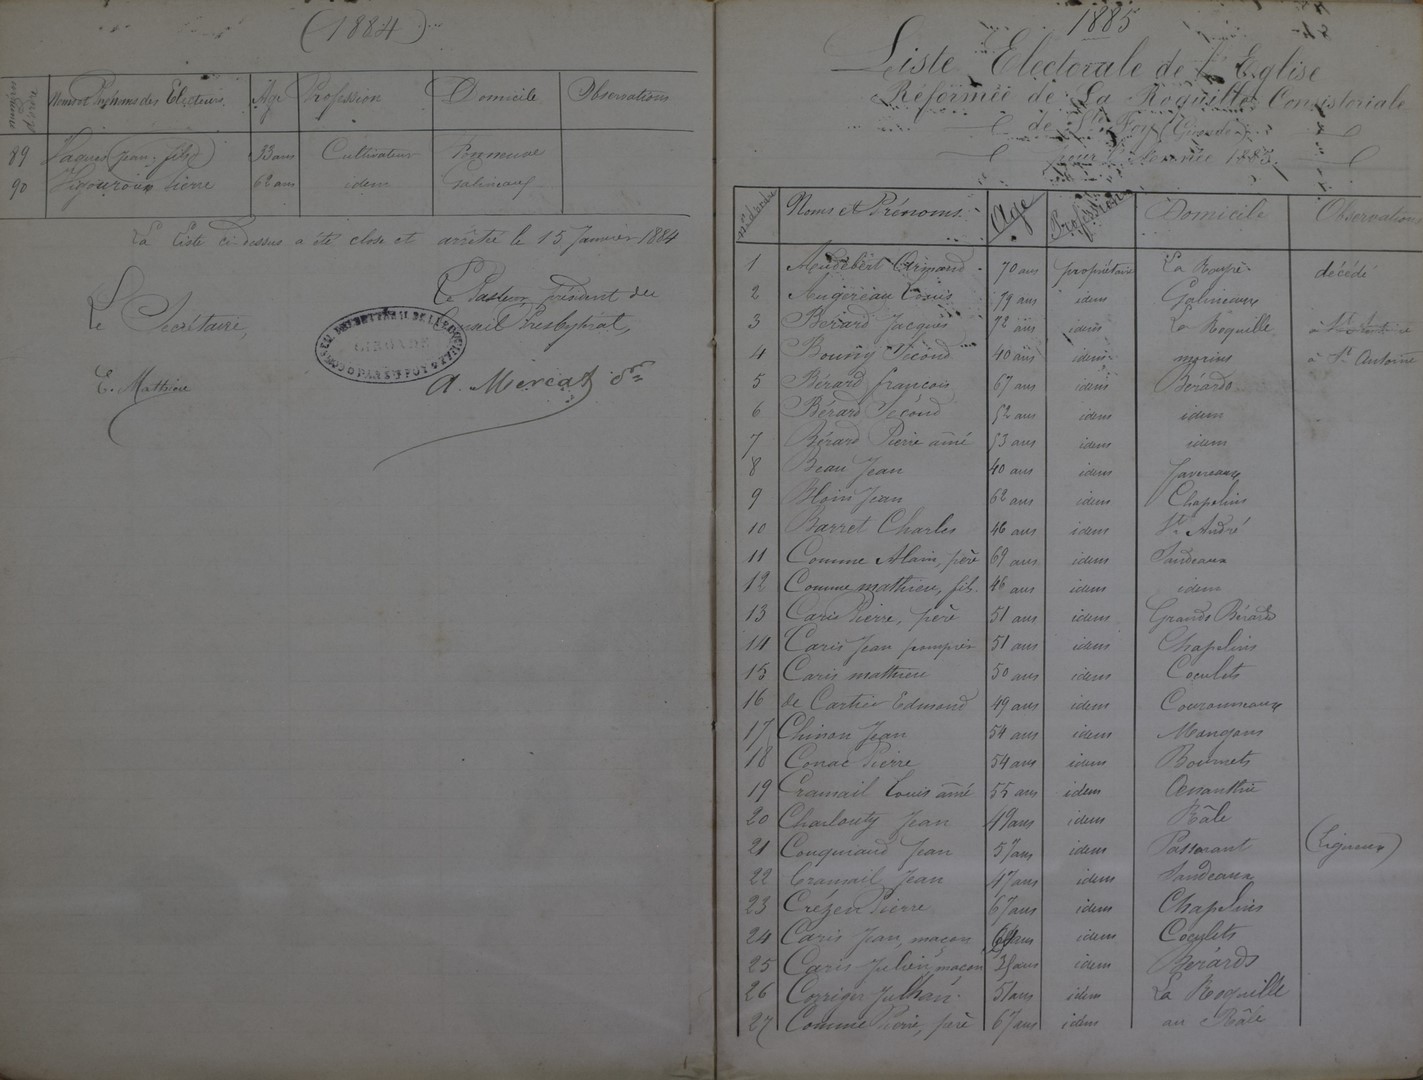 (1884)
numéros d'ordre Noms et Prénoms des Electeurs Age Profession Domicile Observations
89 Jaques (jean, fils) 33 ans Cultivateur Bonneuve
90 Vigouroux Pierre 62 ans idem Galineaux
La liste ci-dessus a été close et arrêtée le 15 Janvier 1884
Le Pasteur, président du
Conseil Presbytéral,
Le Secrétaire,
CONSEIL PRESBYTERAL DE LA ROQUILLE
GIRONDE
E. Mathieu
A. Mercat
1885
Liste Electorale de l'Eglise
Réformée de La Roquille Consistoriale
de Ste Foy (Gironde)
pour l'Année 1885.
nos d'ordre Noms et Prénoms. Age Profession Domicile Observations
1 Audebert Armand 70 ans propriétaire La Roupe décédé
2 Augereau Louis 79 ans idem Galineaux
3 Berard Jacques 72 ans idem La Roquille à St Antoine
4 Bouny Sécond 40 ans idem morins à St Antoine
5 Bérard françois 67 ans idem Bérards
6 Bérard Sécond 52 ans idem idem
7 Bérard Pierre ainé 53 ans idem idem
8 Beau Jean 40 ans idem Javereaux
9 Bloin Jean 62 ans idem Chapelins
10 Barret Charles 46 ans idem St André
11 Comme Alain, père 69 ans idem Jandeaux
12 Comme mathieu, fils. 46 ans idem idem
13 Caris Pierre, père 51 ans idem Grands Bérards
14 Caris Jean 51 ans idem Chapelins
15 Caris mathieu 50 ans idem Coculets
16 de Cartier Edmond 49 ans idem Couronneaux
17 Chinon Jean 54 ans idem Mangons
18 Conac Pierre 54 ans idem Bournets
19 Cramail Louis ainé 55 ans idem
20 Charlouty Jean 49 ans idem Râle
21 Couquiaud Jean 57 ans idem Passavant (Ligueux)
22 Cramail Jean 47 ans idem Jandeaux
23 Crézen Pierre 67 ans idem Chapelins
24 Caris Jean, maçon ans idem Coculets
25 Caris Julien, maçon 35 ans idem Berards
26 51 ans idem La Roquille
27 Comme Pierre, père 67 ans idem au Râle